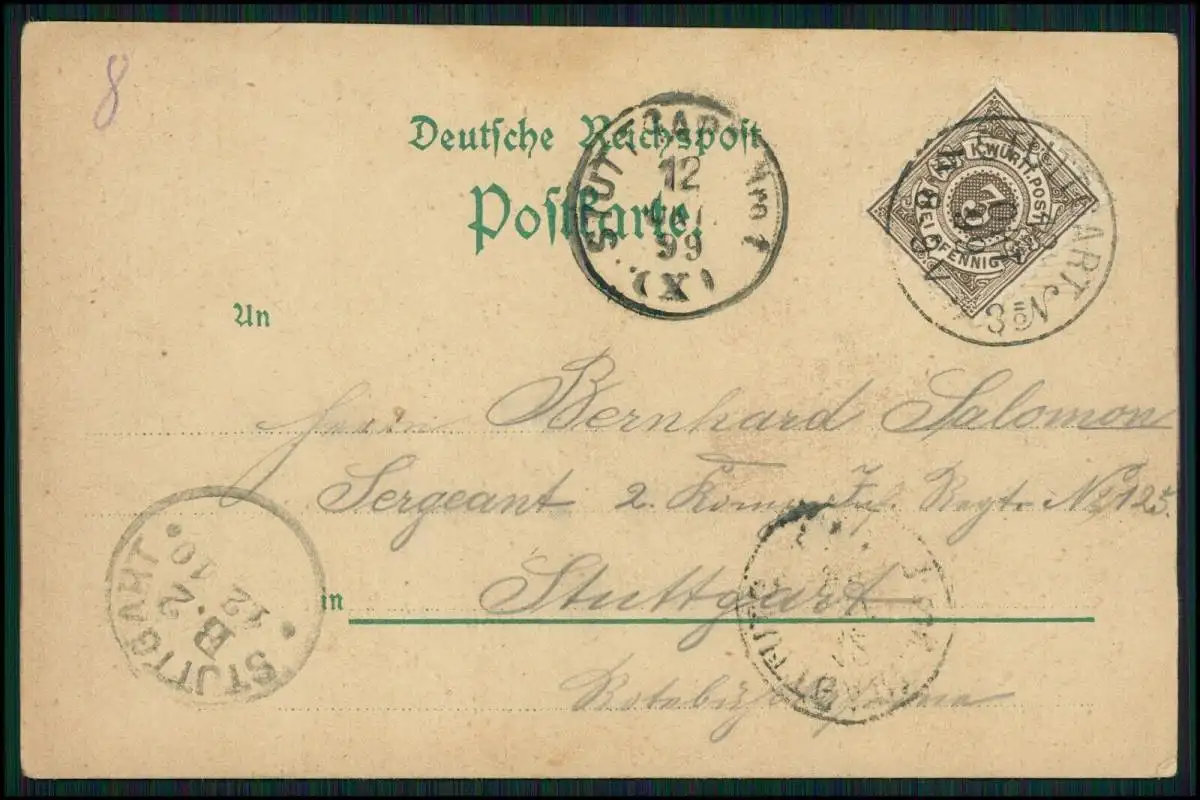 8
Deutsche Reichspost
Postkarte.
STUTTGART Nro 1
12
99
(X)
K.WÜRTT.POST
3
DREI PFENNIG
STUTTGART. No 3
An
Herrn Bernhard Salomon
Sergeant 2. Komp. Inf. Regt. No 125.
in Stuttgart
STUTTGART
B. 2
12
10